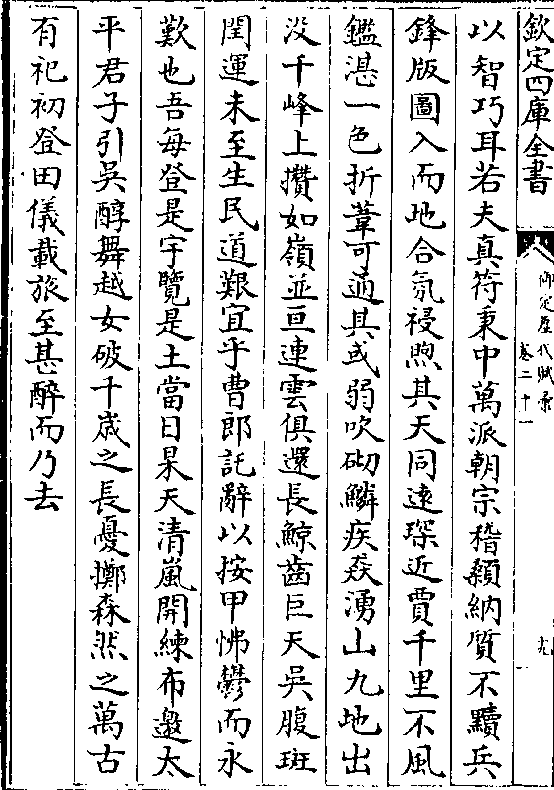 欽定四庫全書
御定歷代賦彙
卷二十一
以智巧耳若夫真符秉中萬派朝宗稽顙納質不黷兵
鋒版圖入而地合氛祲煦其天同遠琛近賈千里不風
鑑湛一色折葦可適其或弱吹砌鱗疾猋湧山九地出
沒千峰上攢如嶺並亘連雲俱還長鯨齒巨天吳腹斑
閏運未至生民道艱宜乎曹郎託辭以按甲怫鬱而永
歎也吾每登是宇覽是土當日杲天清嵐開練布邀太
平君子引吳醇舞越女破千歲之長憂擲森然之萬古
有祀初登田儀載旅至甚醉而乃去